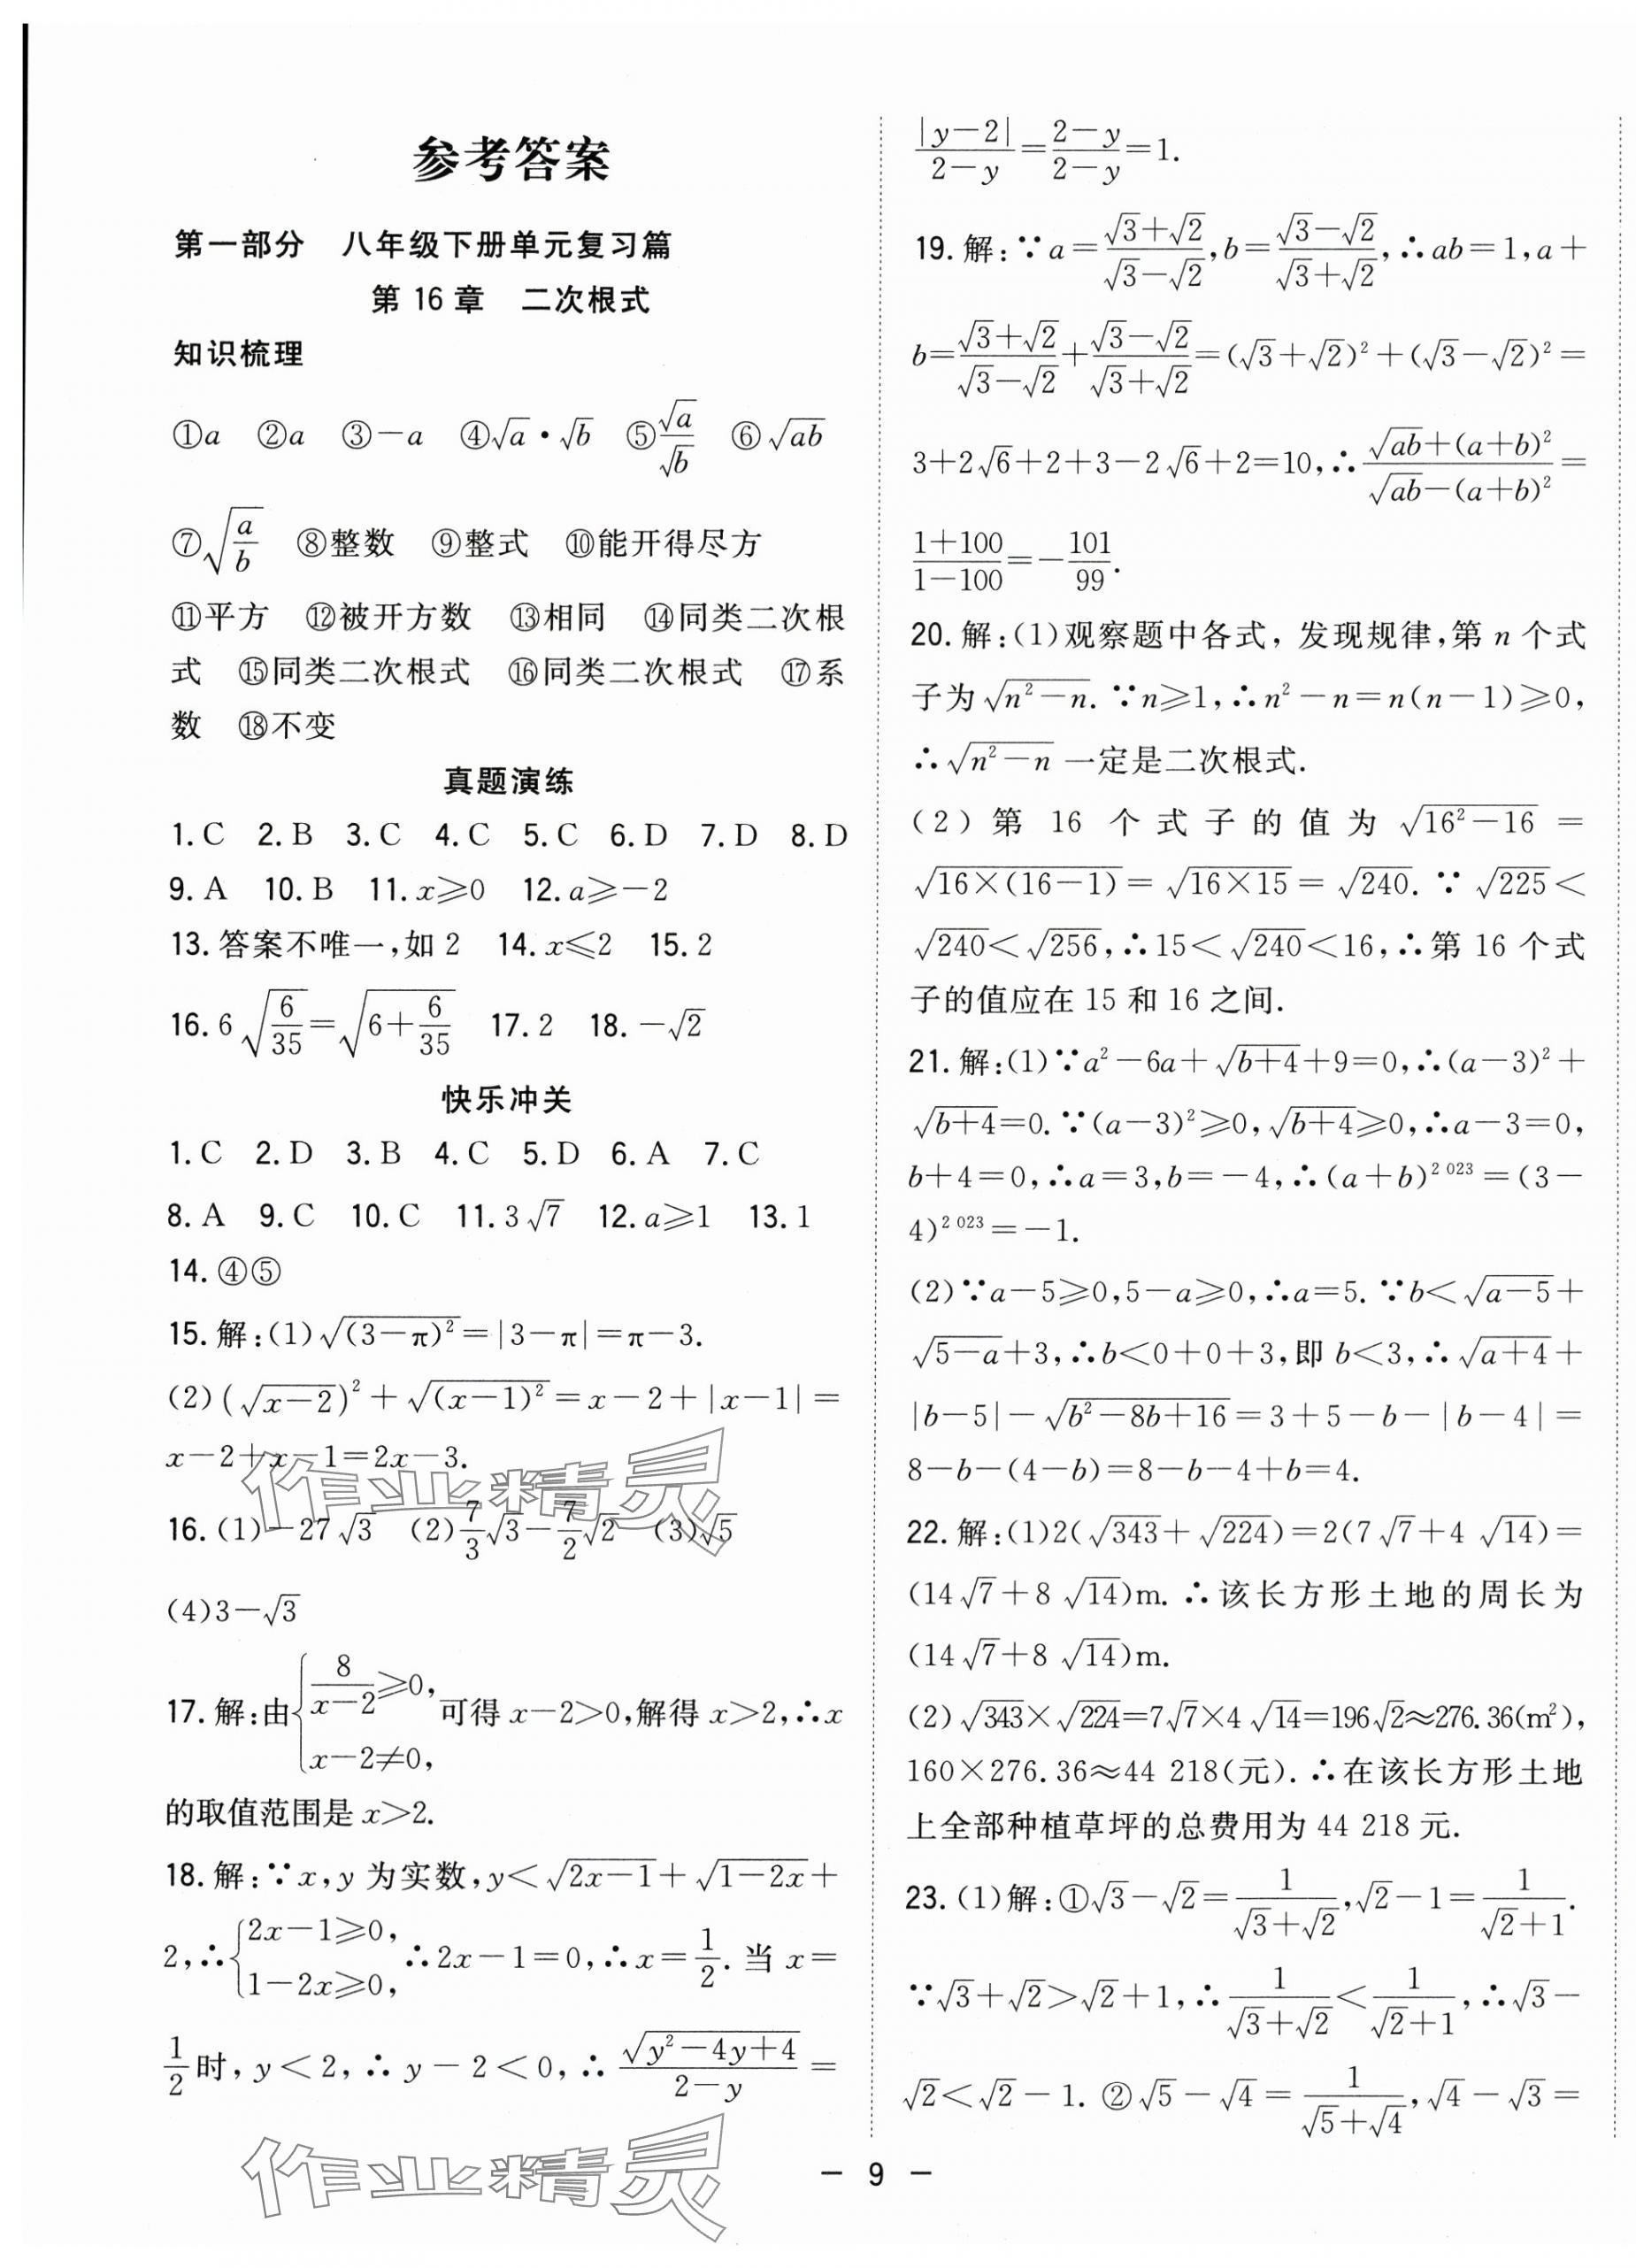 参考答案
第一部分　八年级下册单元复习篇
第 16 章　二次根式
知识梳理
①a　②a　③－a　④√a·√b　⑤√a/√b　⑥√(ab)
⑦√(a/b)　⑧整数　⑨整式　⑩能开得尽方
⑪平方　⑫被开方数　⑬相同　⑭同类二次根
式　⑮同类二次根式　⑯同类二次根式　⑰系
数　⑱不变
真题演练
1. C　2. B　3. C　4. C　5. C　6. D　7. D　8. D
9. A　10. B　11. x⩾0　12. a⩾－2
13. 答案不唯一,如 2　14. x⩽2　15. 2
16. 6√(6/35)＝√(6＋6/35)　17. 2　18. －√2
快乐冲关
1. C　2. D　3. B　4. C　5. D　6. A　7. C
8. A　9. C　10. C　11. 3√7　12. a⩾1　13. 1
14. ④⑤
15. 解:(1)√((3－π)²)＝|3－π|＝π－3.
(2)(√(x－2))²＋√((x－1)²)＝x－2＋|x－1|＝
x－2＋x－1＝2x－3.
16. (1)－27√3　(2)7/3√3－7/2√2　(3)√5
(4)3－√3
17. 解:由{8/(x－2)⩾0, x－2≠0,可得 x－2>0,解得 x>2,∴x
的取值范围是 x>2.
18. 解:∵x,y 为实数,y<√(2x－1)＋√(1－2x)＋
2,∴{2x－1⩾0, 1－2x⩾0,∴2x－1＝0,∴x＝1/2. 当 x＝
1/2时,y<2,∴y－2<0,∴√(y²－4y＋4)/(2－y)＝
|y－2|/(2－y)＝(2－y)/(2－y)＝1.
19. 解:∵a＝(√3＋√2)/(√3－√2),b＝(√3－√2)/(√3＋√2),∴ab＝1,a＋
b＝(√3＋√2)/(√3－√2)＋(√3－√2)/(√3＋√2)＝(√3＋√2)²＋(√3－√2)²＝
3＋2√6＋2＋3－2√6＋2＝10,∴(√(ab)＋(a＋b)²)/(√(ab)－(a＋b)²)＝
(1＋100)/(1－100)＝－101/99.
20. 解:(1)观察题中各式, 发现规律,第 n 个式
子为√(n²－n). ∵n⩾1,∴n²－n＝n(n－1)⩾0,
∴√(n²－n) 一定是二次根式.
(2)第 16 个式子的值为√(16²－16)＝
√(16×(16－1))＝√(16×15)＝√240. ∵√225<
√240<√256,∴15<√240<16,∴第 16 个式
子的值应在 15 和 16 之间.
21. 解:(1)∵a²－6a＋√(b＋4)＋9＝0,∴(a－3)²＋
√(b＋4)＝0. ∵(a－3)²⩾0,√(b＋4)⩾0,∴a－3＝0,
b＋4＝0,∴a＝3,b＝－4,∴(a＋b)²⁰²³＝(3－
4)²⁰²³＝－1.
(2)∵a－5⩾0,5－a⩾0,∴a＝5. ∵b<√(a－5)＋
√(5－a)＋3,∴b<0＋0＋3,即 b<3,∴√(a＋4)＋
|b－5|－√(b²－8b＋16)＝3＋5－b－|b－4|＝
8－b－(4－b)＝8－b－4＋b＝4.
22. 解:(1)2(√343＋√224)＝2(7√7＋4√14)＝
(14√7＋8√14)m. ∴该长方形土地的周长为
(14√7＋8√14)m.
(2)√343×√224＝7√7×4√14＝196√2≈276.36(m²),
160×276.36≈44 218(元). ∴在该长方形土地
上全部种植草坪的总费用为 44 218 元.
23. (1)解:①√3－√2＝1/(√3＋√2),√2－1＝1/(√2＋1).
∵√3＋√2>√2＋1,∴1/(√3＋√2)<1/(√2＋1),∴√3－
√2<√2－1. ②√5－√4＝1/(√5＋√4),√4－√3＝
－ 9 －
作业精灵
作业精灵